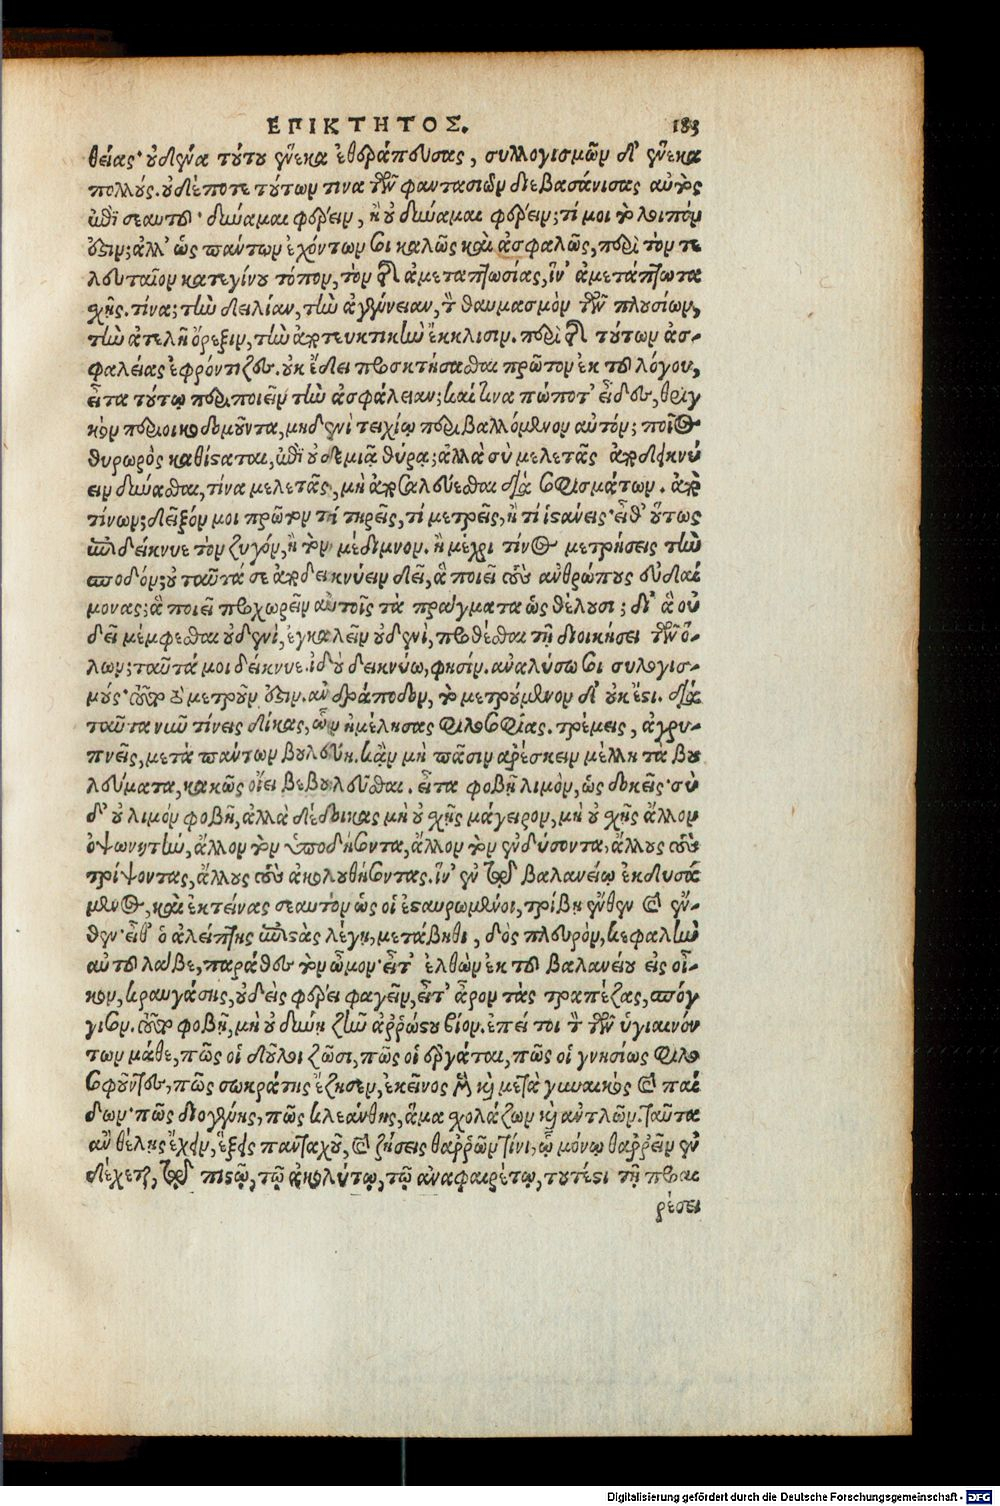 ΕΠΙΚΤΗΤΟΣ. 183
θείας· οὐδένα τούτου ἕνεκα ἐθεράπευσας, συλλογισμῶν δ' ἕνεκα
πολλούς. οὐδέποτε τούτων τινα τῶν φαντασιῶν διεβασάνισας αὐτὸς
ἐπὶ σεαυτοῦ· δύναμαι φέρειν, ἢ οὐ δύναμαι φέρειν; τί μοι τὸ λοιπόν
ὅζιν; ἀλλ' ὡς πάντων ἐχόντων σοι καλῶς καὶ ἀσφαλῶς, περὶ τὸν τε
λευταῖον κατεγίνου τόπον, τὸν τῆς ἀμεταπτωσίας, ἵν' ἀμετάπτωτα
σχῇς. τίνα; τὴν δειλίαν, τὴν ἀγέννειαν, τὸν θαυμασμὸν τῶν πλουσίων,
τὴν ἀτελῆ ὄρεξιν, τὴν ἀποτευκτικὴν ἔκκλισιν. περὶ τῆς τούτων ἀσ-
φαλείας ἐφρόντιζες. οὐκ ἔδει προσκτήσασθαι πρῶτον ἐκ τοῦ λόγου,
εἶτα τούτῳ περιποιεῖν τὴν ἀσφάλειαν; καὶ τίνα πώποτ' εἶδες, θριγ
κὸν περιοικοδομοῦντα, μηδενὶ τειχίῳ περιβαλλόμενον αὐτόν; ποῖος
θυρωρὸς καθίσταται, ἐπὶ οὐδεμιᾷ θύρᾳ; ἀλλὰ σὺ μελετᾷς ἀποδεικνύ
ειν δύνασθαι, τίνα μελετᾷς, μὴ ἀποσαλεύεσθαι διὰ σοφισμάτων. ἀπὸ
τίνων; δεῖξόν μοι πρῶτον τί τηρεῖς, τί μετρεῖς, ἢ τί ἱστάνεις· εἶθ' οὕτως
ἐπιδείκνυε τὸν ζυγόν, ἢ τὸν μέδιμνον. ἢ μέχρι τίνος μετρήσεις τὴν
σποδόν; οὐ ταῦτά σε ἀποδεικνύειν δεῖ, ἃ ποιεῖ τοὺς ἀνθρώπους εὐδαί
μονας; ἃ ποιεῖ προχωρεῖν αὐτοῖς τὰ πράγματα ὡς θέλουσι; δι' ἃ οὐ
δεῖ μέμφεσθαι οὐδενί, ἐγκαλεῖν οὐδενί, προθέσθαι τῇ διοικήσει τῶν ὅ-
λων; ταῦτά μοι δείκνυε. ἰδοὺ δεικνύω, φησίν. ἀναλύσω σοι συλογισ-
μούς· τοῦτο τὸ μετροῦν ὅζιν. ἀνδράποδον, τὸ μετρούμενον δ' οὐκ ἔστι. διὰ
ταῦτα νῦν τίνεις δίκας, ὧν ἠμέλησας φιλοσοφίας. τρέμεις, ἀγρυ-
πνεῖς, μετὰ πάντων βουλεύῃ. κἂν μὴ πᾶσιν ἀρέσκειν μέλλῃ τὰ βου
λεύματα, κακῶς οἴει βεβουλεῦσθαι. εἶτα φοβῇ λιμὸν, ὡς δοκεῖς· σὺ
δ' οὐ λιμὸν φοβῇ, ἀλλὰ δέδοικας μὴ οὐ σχῇς μάγειρον, μὴ οὐ σχῇς ἄλλον
ὀψωνητὴν, ἄλλον τὸν ὑποδήσοντα, ἄλλον τὸν ἐνδύσοντα, ἄλλους τοὺς
τρίψοντας, ἄλλους τοὺς ἀκολουθήσοντας. ἵν' ἐν τῷ βαλανείῳ ἐκδυσά
μενος, καὶ ἐκτείνας σεαυτὸν ὡς οἱ ἐσταυρωμένοι, τρίβῃ ἔνθεν καὶ ἔν-
θεν· εἶθ' ὁ ἀλείπτης ἐπιστὰς λέγῃ, μετάβηθι, δὸς πλευρόν, κεφαλὴν
αὐτοῦ λάβε, παράθες τὸν ὦμον· εἶτ' ἐλθὼν ἐκ τοῦ βαλανείου εἰς οἶ-
κον, κραυγάσῃς, οὐδεὶς φέρει φαγεῖν, εἶτ' ἆρον τὰς τραπέζας, σπόγ
γισον. τοῦτο φοβῇ, μὴ οὐ δύνῃ ζῆν ἀῤῥώστου βίον. ἐπεί τοι τὸν τῶν ὑγιαινόν
των μάθε, πῶς οἱ δοῦλοι ζῶσι, πῶς οἱ ἐργάται, πῶς οἱ γνησίως φιλο
σοφοῦντες, πῶς σωκράτης ἔζησεν, ἐκεῖνος μὲν καὶ μετὰ γυναικὸς καὶ παί
δων· πῶς διογένης, πῶς κλεάνθης, ἅμα σχολάζων καὶ ἀντλῶν. ταῦτα
ἂν θέλῃς ἔχειν, ἕξεις πανταχοῦ, καὶ ζήσεις θαῤῥῶν τίνι, ᾧ μόνῳ θαῤῥεῖν ἐν
δέχεται, τῷ πιστῷ, τῷ ἀκολύτῳ, τῷ ἀναφαιρέτῳ, τουτέστι τῇ προαι
ρέσει
Digitalisierung gefördert durch die Deutsche Forschungsgemeinschaft - DFG